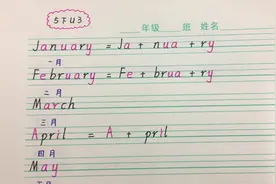 5下U3
年级 班 姓名
January = Ja + nua + ry
一月
February = Fe + brua + ry
二月
March
三月
April = A + pril
四月
May
五月